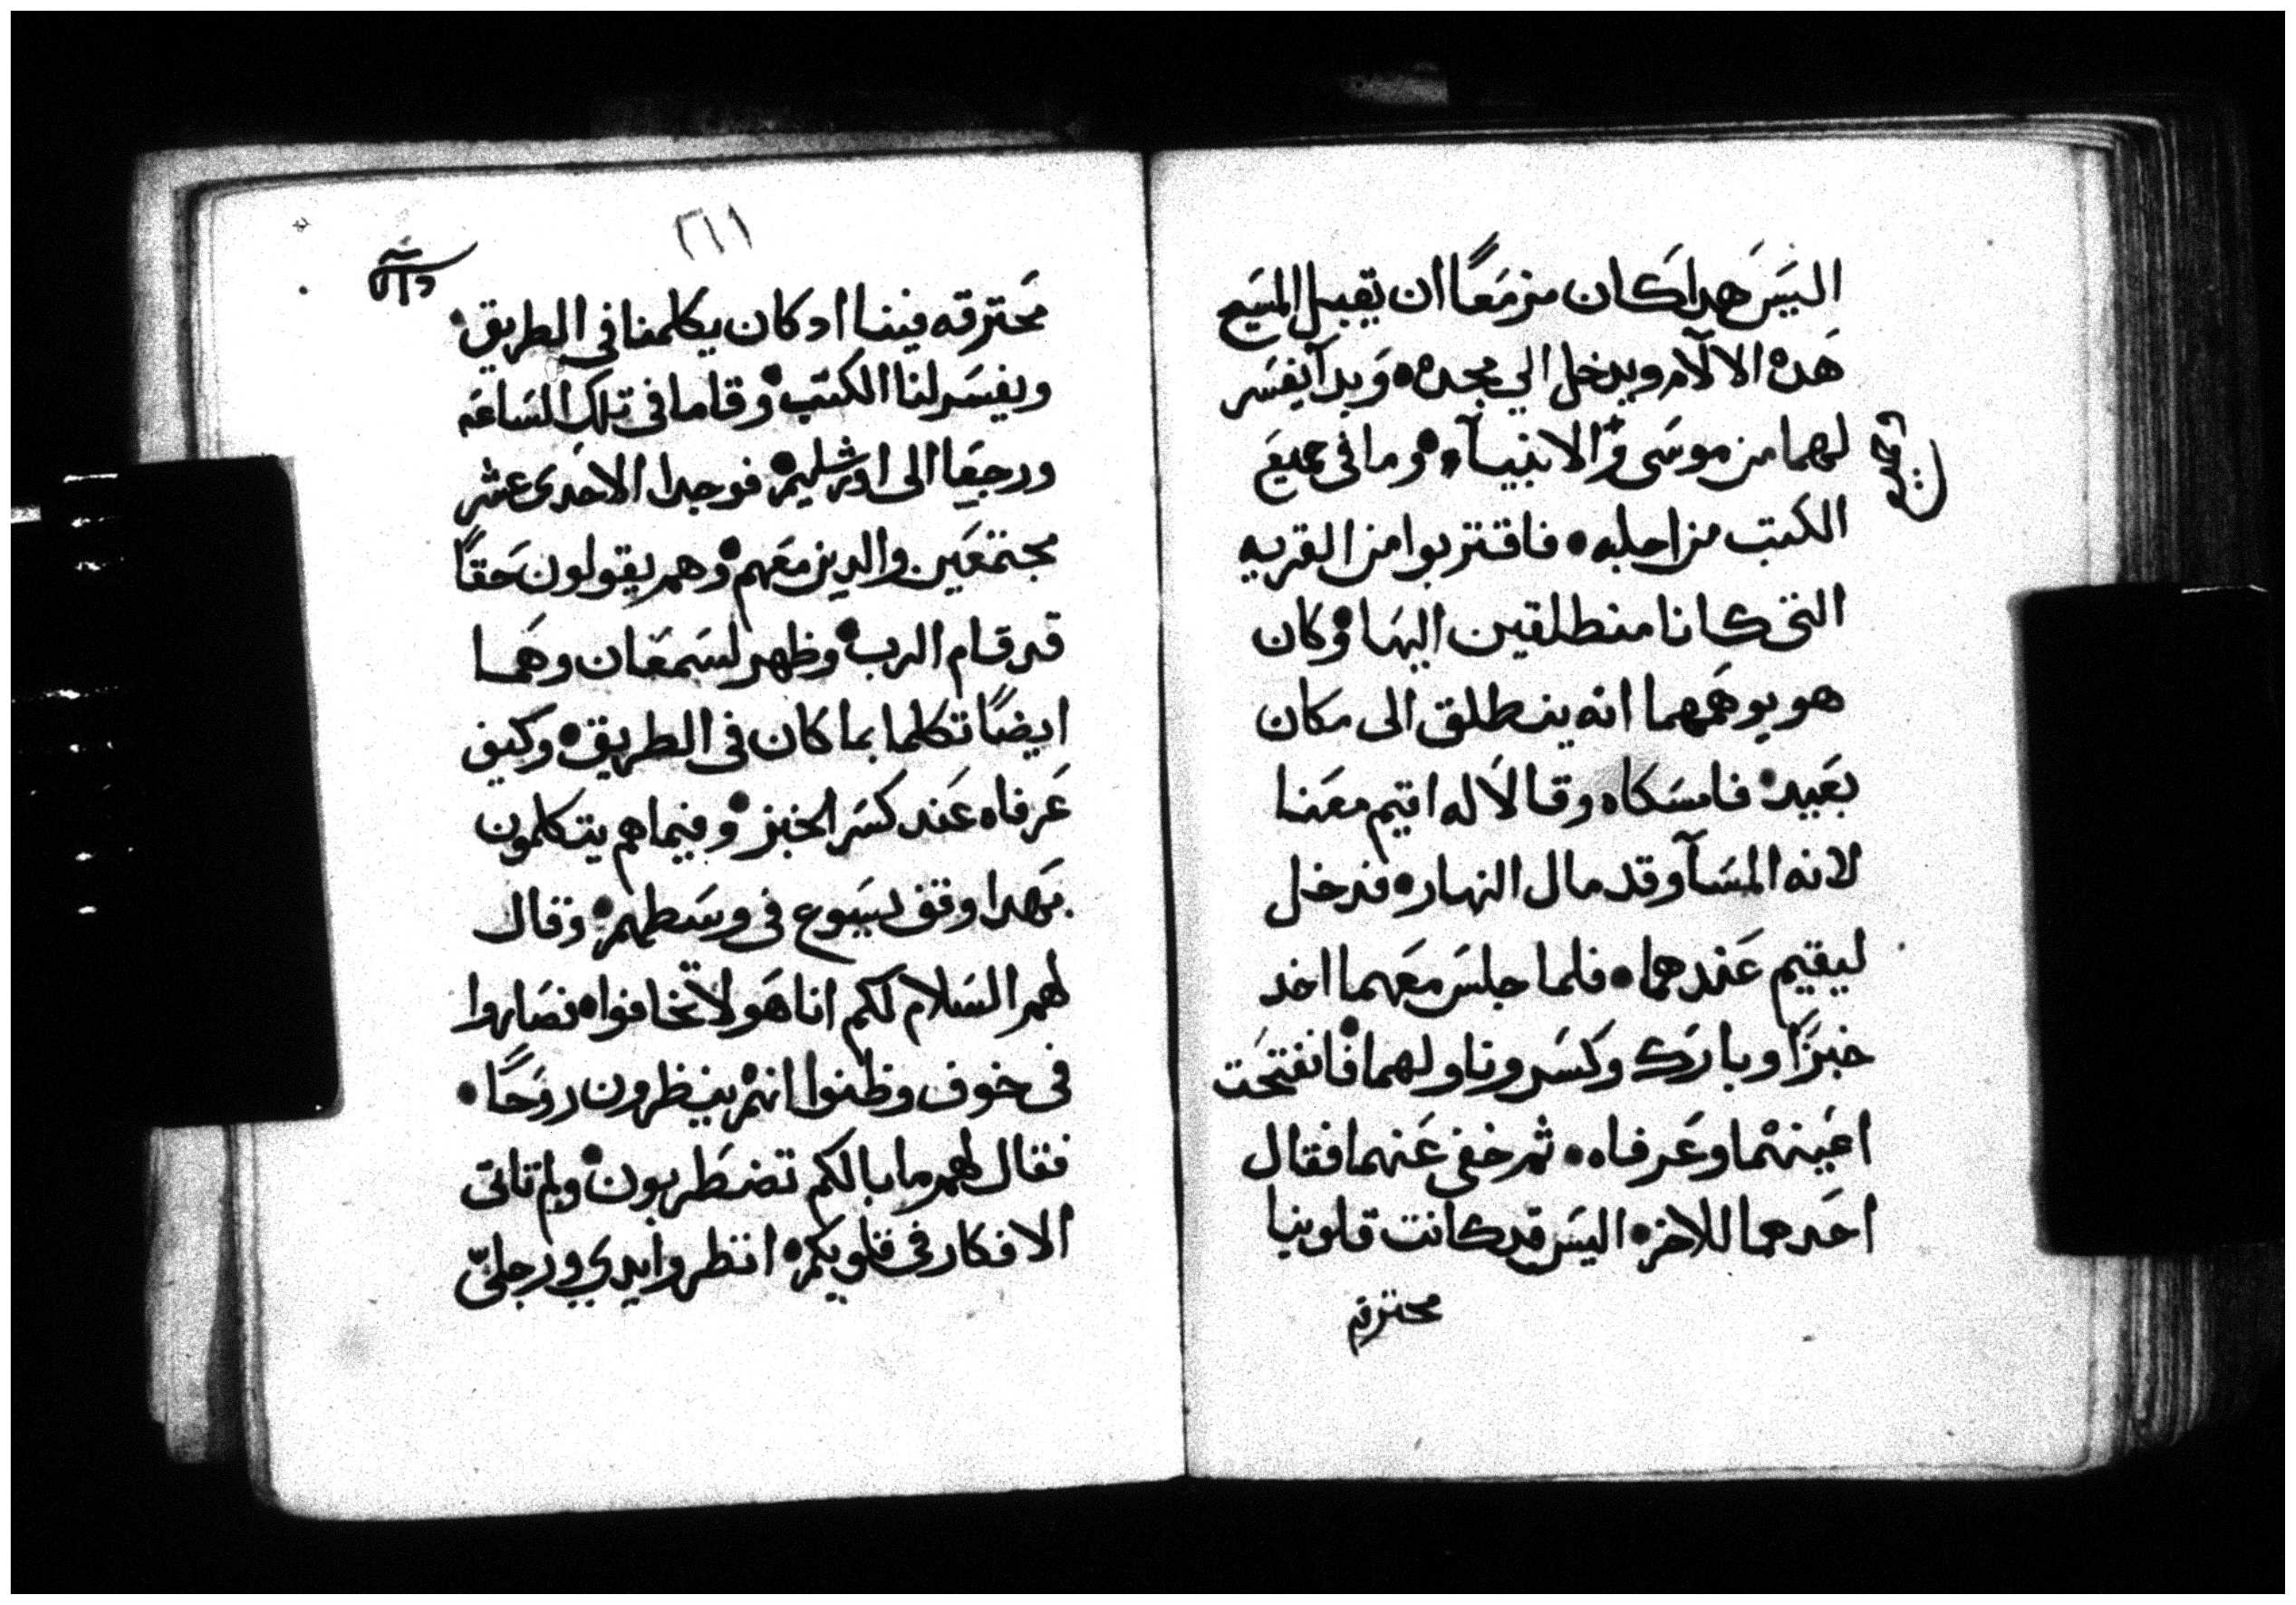 اليَسَ هَدا كَان مزمَعًا ان يقبل المسَيح
هَده الالآم ويدخل الي مجده وَبدآ يفسَر
لهما من موسَى وَالانبيآء وما فى جميعَ
الكتب من اجله فاقتربوا من القريه
التى كانا منطلقين اليهَا وكان
هو يوهَمهما انه ينطلق الى مكان
بعَيد فامسَكاه وقالاَ له اقيم معَنا
لانه المسَآ وقد مال النهار فدخل
ليقيم عَندهما فلما جلسَ معَهما اخد
خبزًا وبارَك وكسَر وناولهما فانفتحَت
اعَينهما وعَرفاه ثم خفى عَنهما فقال
احَدهما للاخر اليسَ قد كانت قلوبنا
محترقه
٢٦١
محَترقه فينا اد كان يكلمنا فى الطريق
ويفسَر لنا الكتب وقاما فى تلك السَاعَه
ورجعَا الى اورشليم فوجدا الاحَدى عشر
مجتمعَين والدين معَهم وهم يقولون حَقًا
قد قام الرب وظهر لسَمعَان وهَما
ايضًا تكلما بما كان فى الطريق وكيف
عَرفاه عَند كسَر الخبز وفيما هم يتكلمون
بهَدا وقف يسَوع فى وسَطهم وقال
لهم السَلام لكم انا هَو لا تخافوا فصَاروا
فى خوف وظنوا انهم ينظرون روَحًا
فقال لهم ما بالكم تضطَربون ولم تاتى
الافكار فى قلوبكم انظروا يدي ورجلىّ